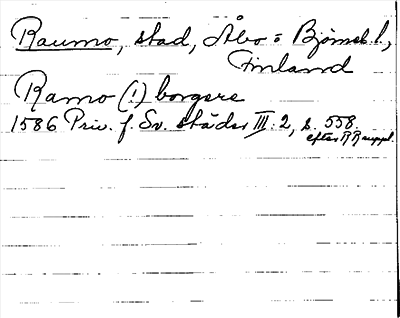 Raumo, stad, Åbo = Björneb. l.,
Finland
Ramo (!) borgere
1586 Priv. f. Sv. städer III: 2, s. 558
efter RRauppl.